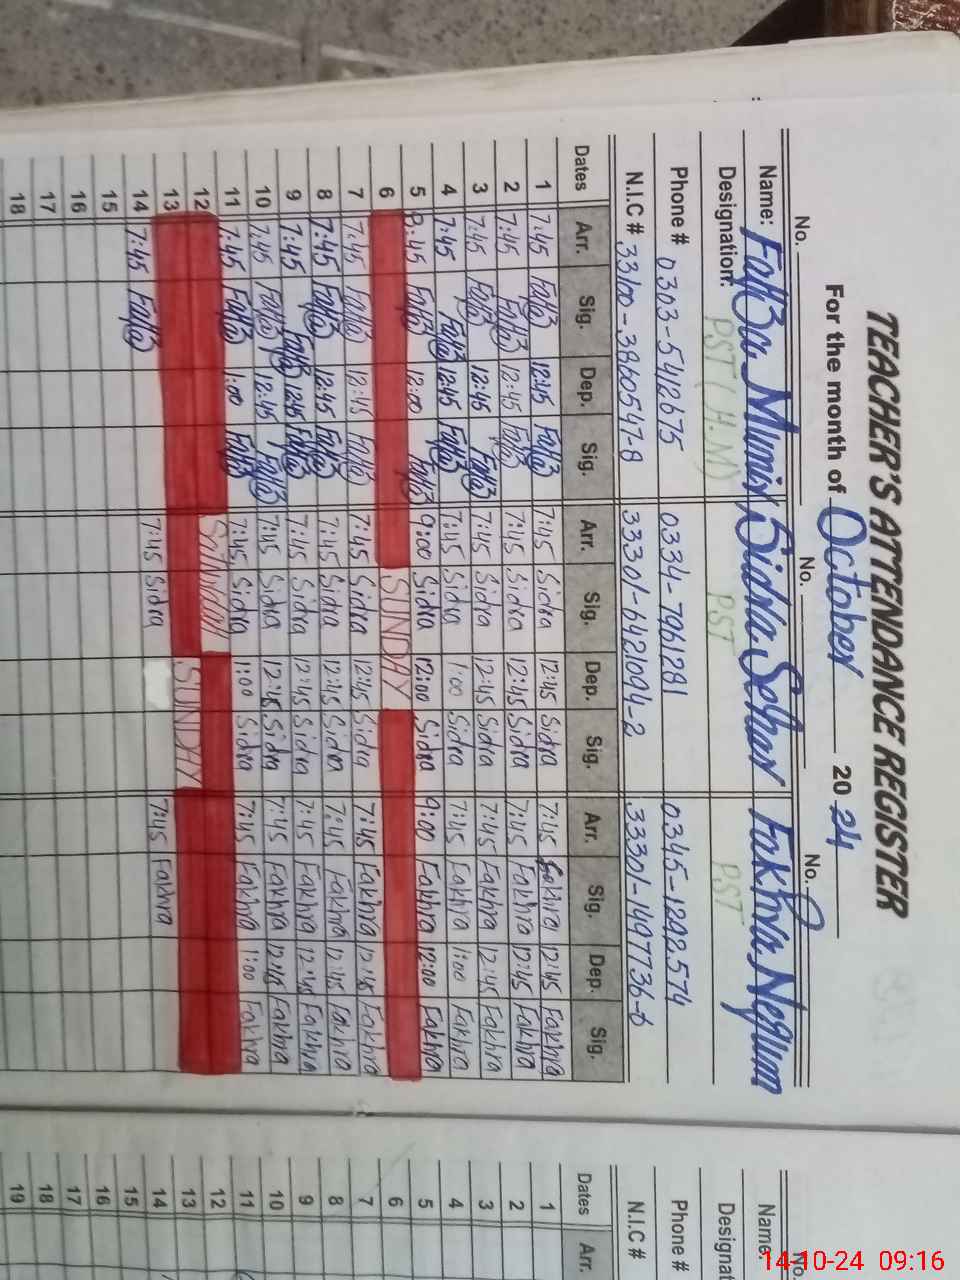 TEACHER'S ATTENDANCE REGISTER
For the month of October 2024
No. No. No.
Name: Sidra Fakhra
Designation: PST (H.M) PST PST
Phone # 0303-5412675 0334-7961281 0345-1292574
N.I.C # 33100-3860547-8 33301-6421094-2 33301-1497736-6
Dates Arr. Sig. Dep. Sig. Arr. Sig. Dep. Sig. Arr. Sig. Dep. Sig.
1 7:45 12:45 7:45 Sidra 12:45 Sidra 7:45 Fakhra 12:45 Fakhra
2 7:45 12:45 7:45 Sidra 12:45 Sidra 7:45 Fakhra 12:45 Fakhra
3 7:45 12:45 7:45 Sidra 12:45 Sidra 7:45 Fakhra 12:45 Fakhra
4 7:45 12:45 7:45 Sidra 1:00 Sidra 7:45 Fakhra 1:00 Fakhra
5 8:45 12:00 9:00 Sidra 12:00 Sidra 9:00 Fakhra 12:00 Fakhra
6 SUNDAY
7 7:45 12:45 7:45 Sidra 12:45 Sidra 7:45 Fakhra 12:45 Fakhra
8 7:45 12:45 7:45 Sidra 12:45 Sidra 7:45 Fakhra 12:45 Fakhra
9 7:45 12:45 7:45 Sidra 12:45 Sidra 7:45 Fakhra 12:45 Fakhra
10 7:45 12:45 7:45 Sidra 12:45 Sidra 7:45 Fakhra 12:45 Fakhra
11 7:45 1:00 7:45 Sidra 1:00 Sidra 7:45 Fakhra 1:00 Fakhra
12
13 SUNDAY
14 7:45 7:45 Sidra 7:45 Fakhra
15
16
17
18
Name: No.
Designat
Phone #
N.I.C #
Dates Arr.
1
2
3
4
5
6
7
8
9
10
11
12
13
14
15
16
17
18
19
14-10-24 09:16